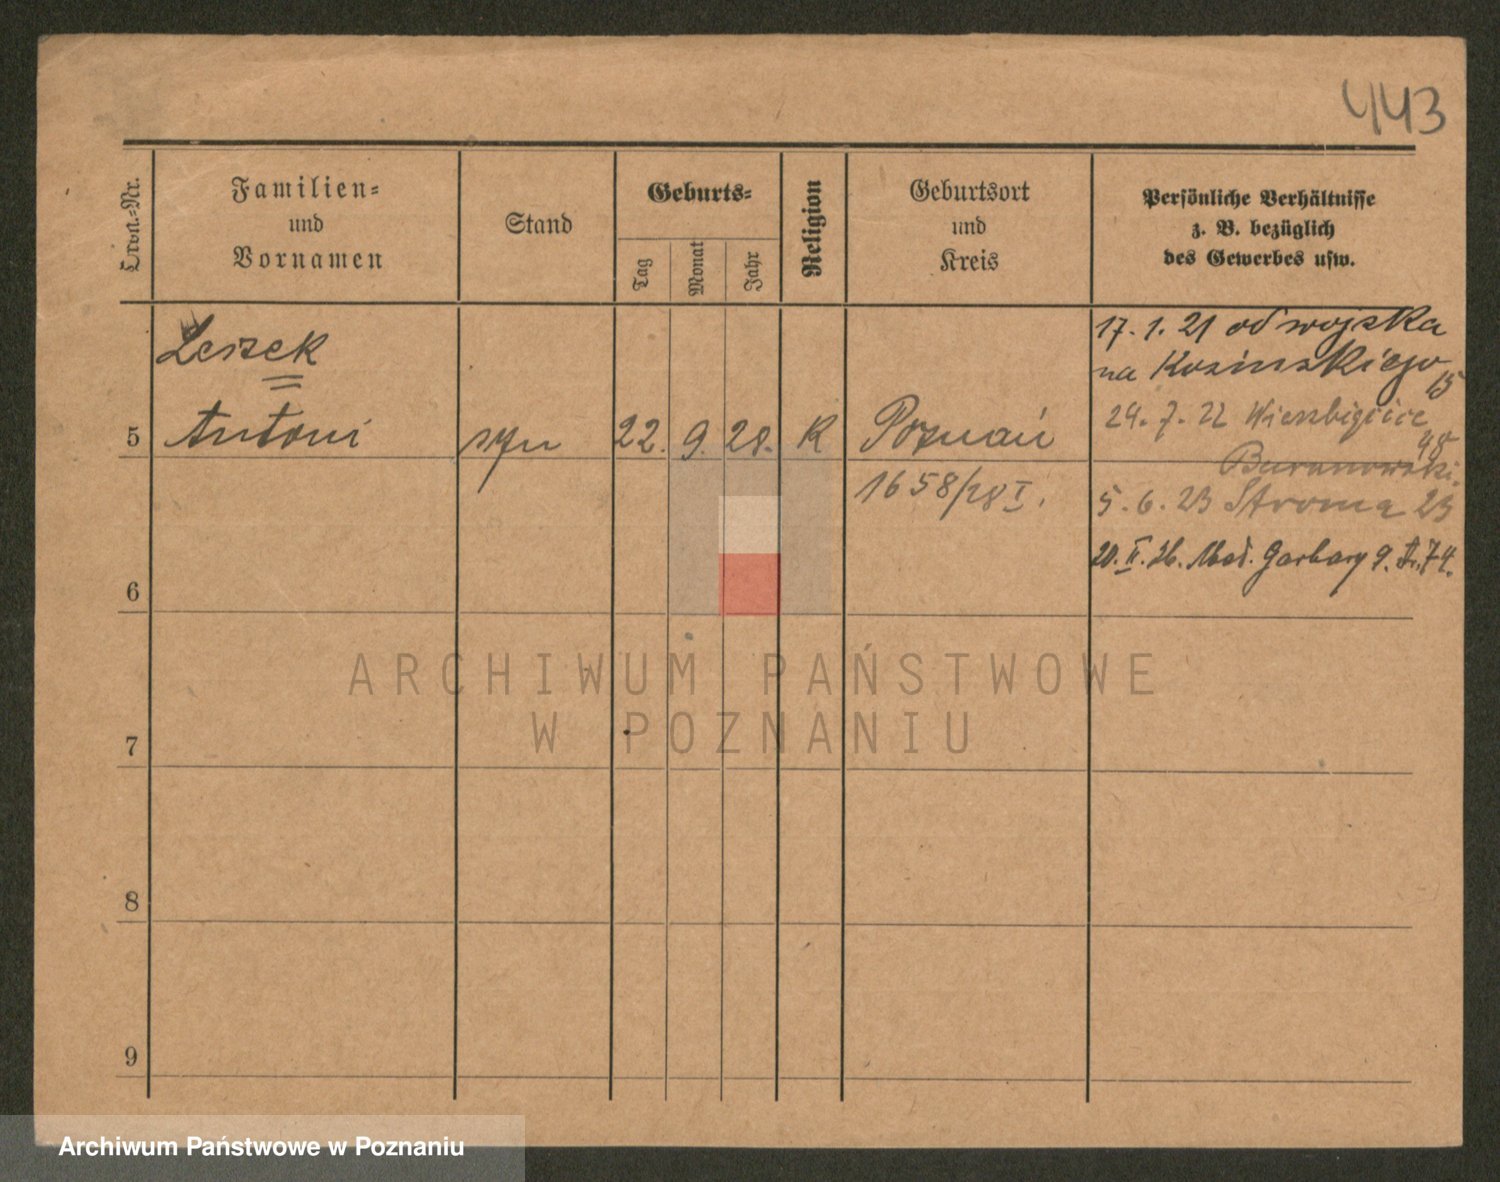 443
Ordn.-Nr.
Familien-
und
Vornamen
Stand
Geburts-
Tag
Monat
Jahr
Religion
Geburtsort
und
Kreis
Persönliche Verhältnisse
z. B. bezüglich
des Gewerbes usw.
Leszek
Antoni
5
syn
22. 9. 28.
K
Poznań
1658/28 I.
17. 1. 21 od wojska
na Kosinskiego 15
24. 7. 22 Wierzbięcice
45
Baranowski.
5. 6. 23 Stroma 23
20. II. 26. Garbary 9. 74.
6
7
8
9
ARCHIWUM PAŃSTWOWE
W POZNANIU
Archiwum Państwowe w Poznaniu